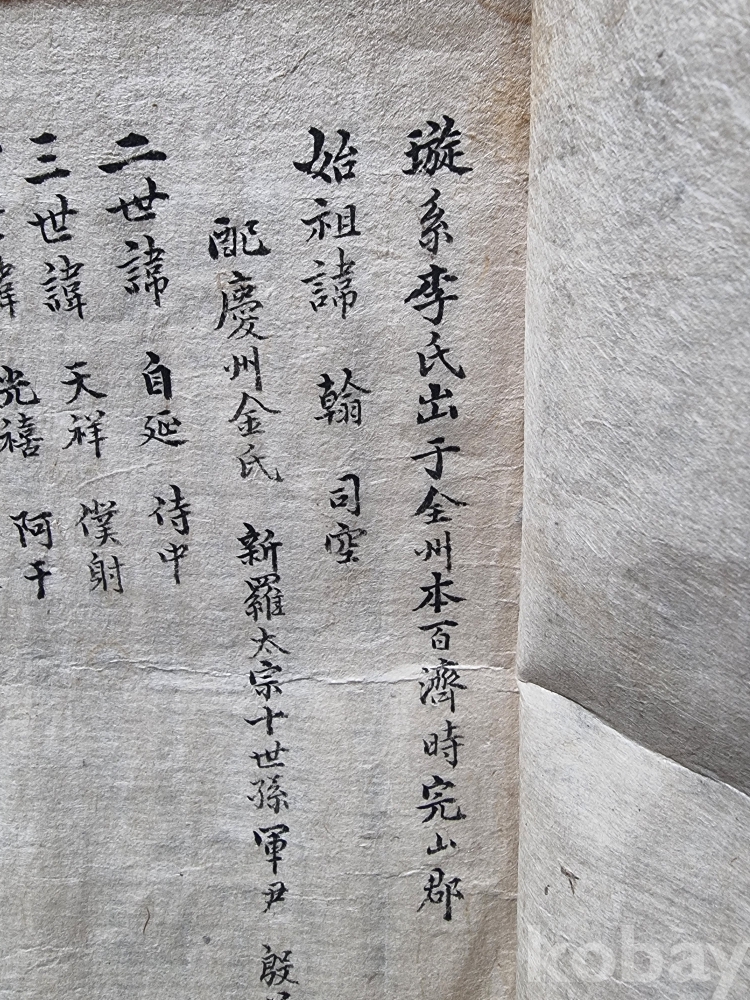 璇系李氏出于全州本百濟時完山郡
始祖諱 翰 司空
配慶州金氏 新羅太宗十世孫軍尹 殷
二世諱 自延 侍中
三世諱 天祥 僕射
世諱 光禧 阿干
kobay